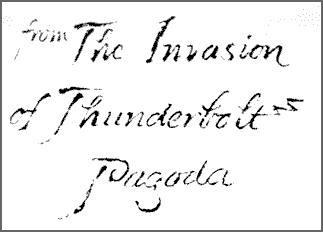 from The Invasion
of Thunderbolt
Pagoda